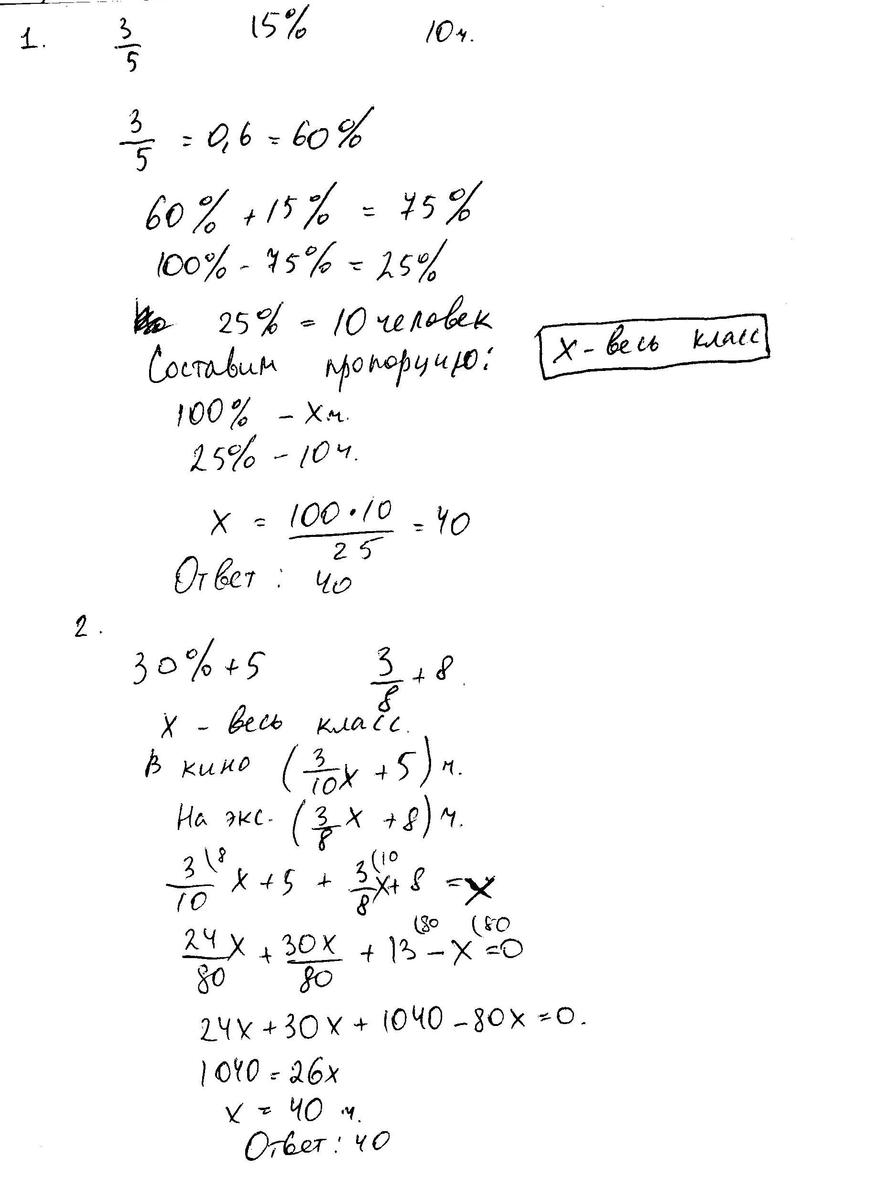 1. 3/5 15% 10ч.
3/5 = 0,6 = 60%
60% + 15% = 75%
100% - 75% = 25%
25% = 10 человек
Составим пропорцию:
x - весь класс
100% - xч.
25% - 10ч.
x = 100·10/25 = 40
Ответ: 40
2.
30% + 5 3/8 + 8.
x - весь класс.
В кино (3/10x + 5) ч.
На экс. (3/8x + 8) ч.
3/10(8 x + 5 + 3/8(10 x + 8 = x
24/80x + 30x/80 + 13(80 - x(80 = 0
24x + 30x + 1040 - 80x = 0.
1040 = 26x
x = 40 ч.
Ответ: 40